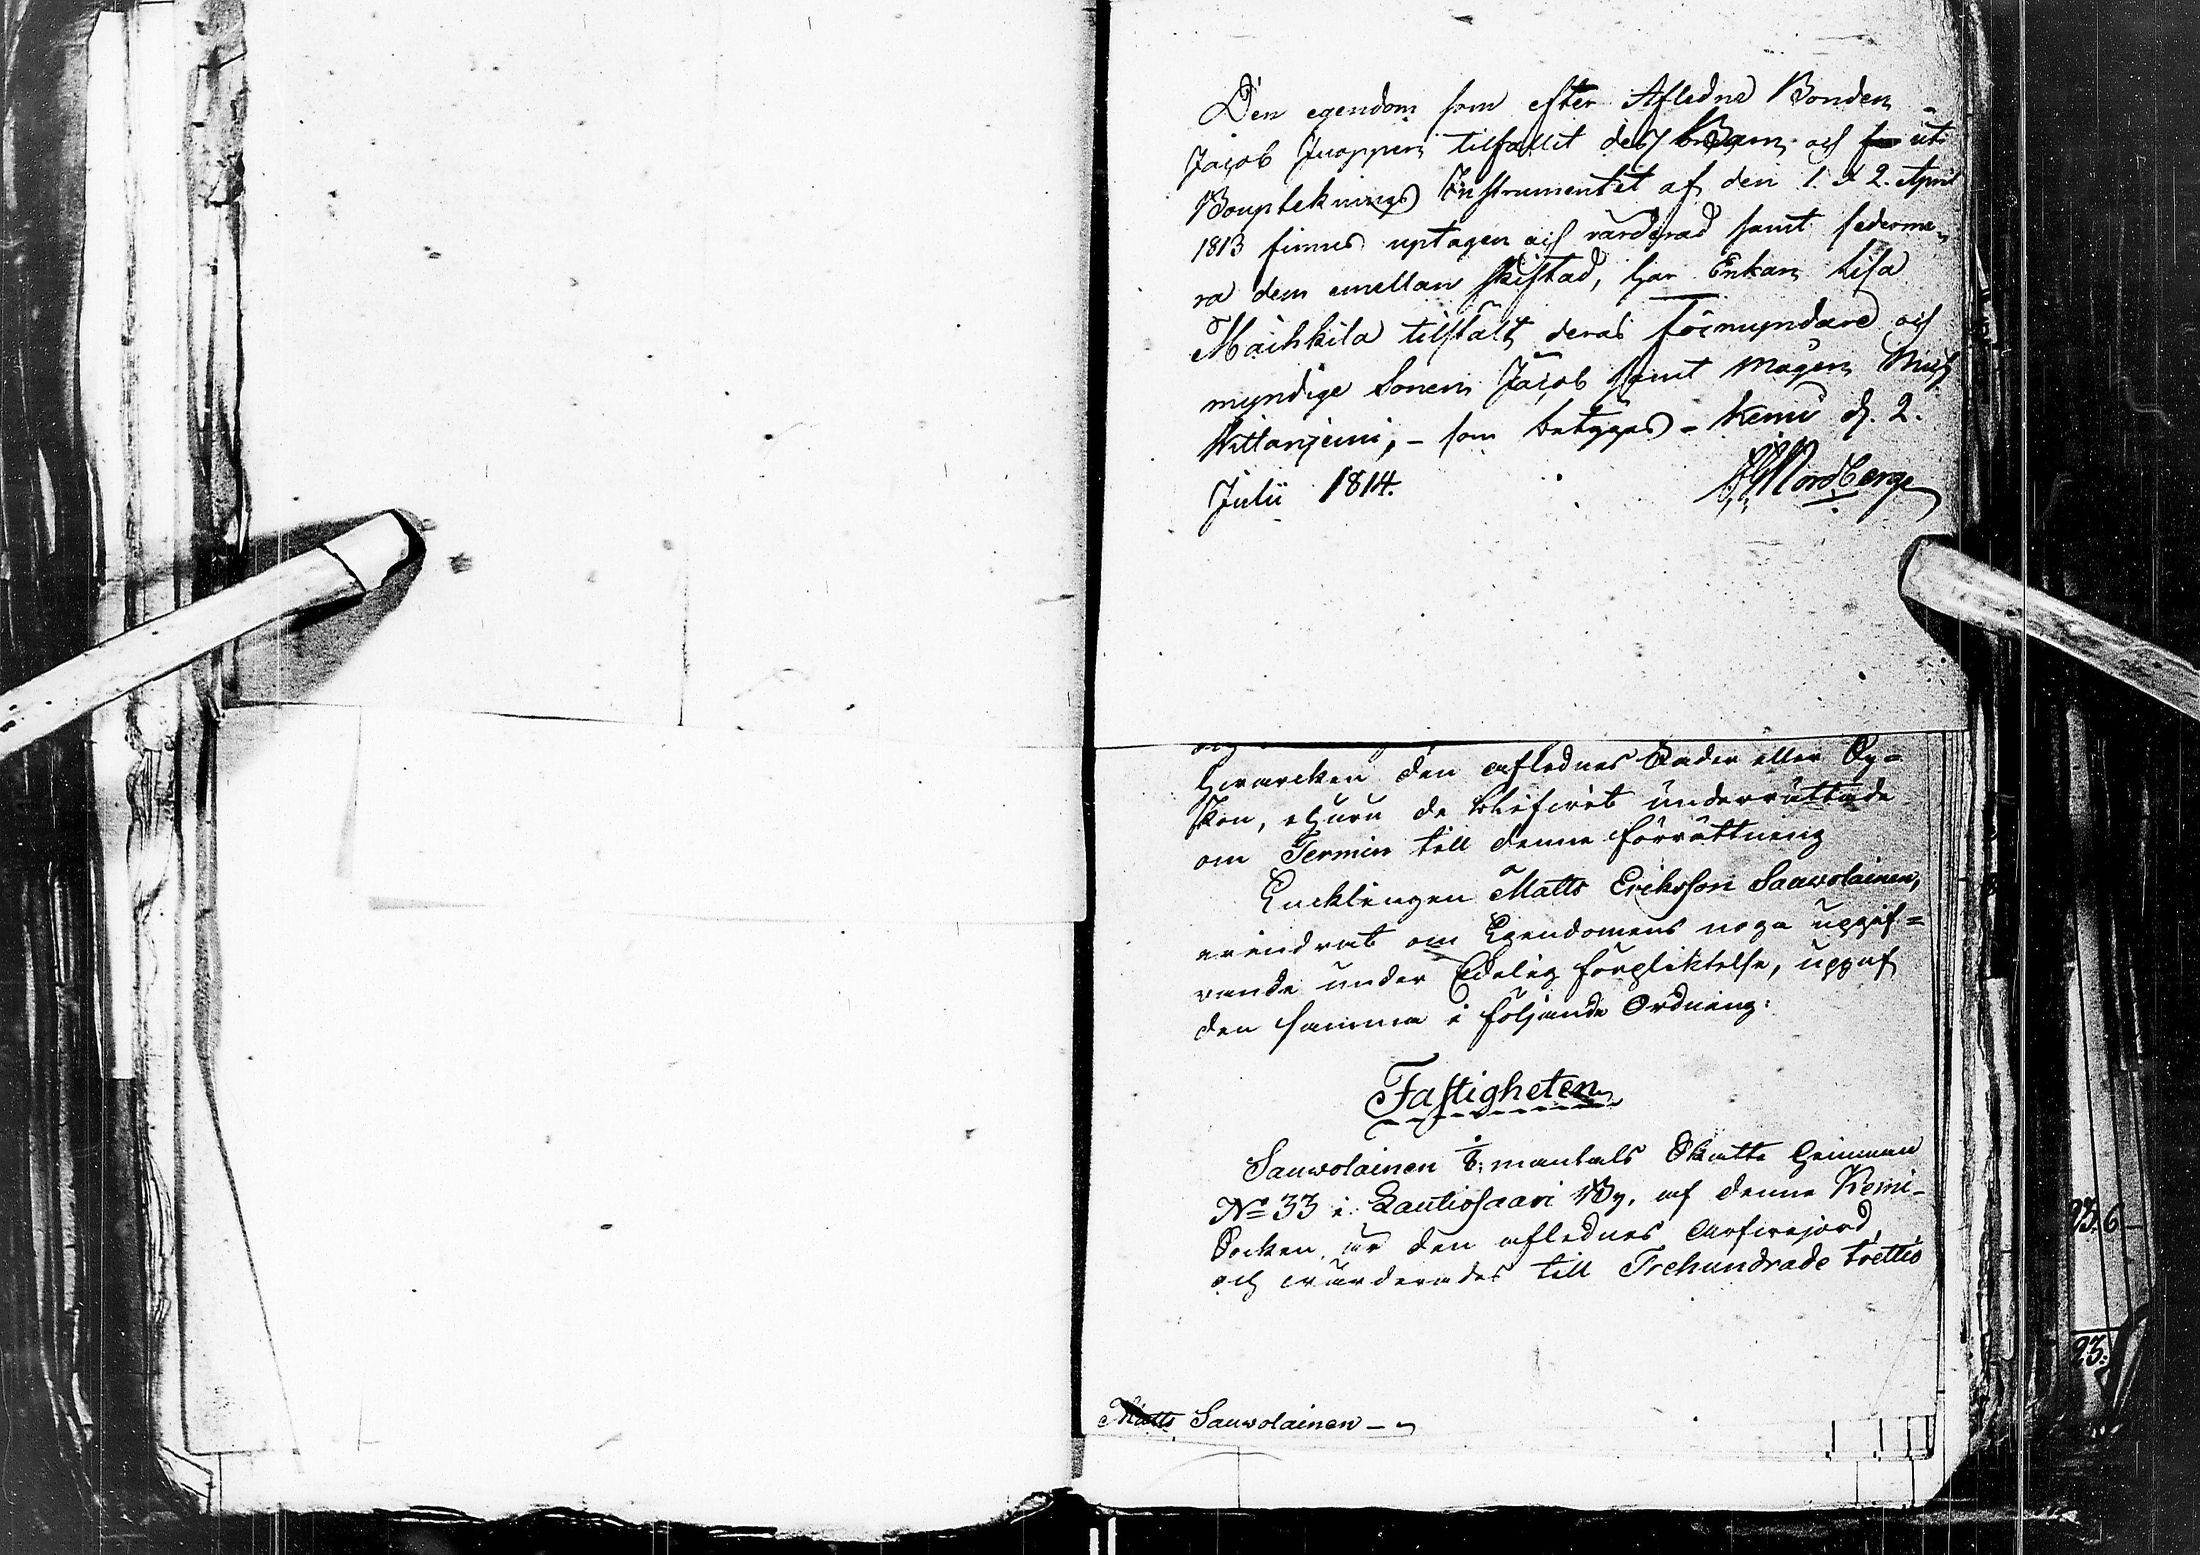 Den egendom som efter Afledne Bonden
Jacob Juoppen tilfallit dess Barn och uti
Boupteknings Instrumentet af den 1. & 2. April
1813 finnes uptagen och värderad samt sederme-
ra dem emellan skiftad, har Enkan Lisa
Maihkila tilstält deras Förmyndare och
myndige Sonen Jacob samt Mågen
, – som betygas – Kemi d. 2.
Julii 1814. Nordberg
hwarcken den aflednes Fader eller Sy=
skon, ehuru de blifwit underrättade
om Termin till denne förrättning
Enklingen Matts Eriksson Sauwolainen,
erindrat om Egendomens noga uppgif=
wande under Edelig förpliktelse, uppgaf
den samma i följande Ordning:
Fastigheten
Sauwolainen 1/8 mantals Skatte Hemman
No 33 i Lautiosaari By, af denne Kemi-
Socken är den aflednes Arfwejord,
och wärderades till Trehundrade trettio
Matts Sauwolainen –
23. 6 –
23.